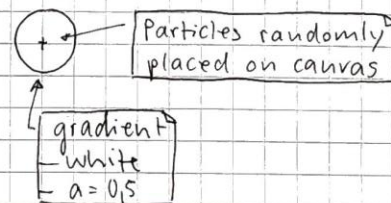 Particles randomly
placed on canvas
gradient
- white
- a = 0,5